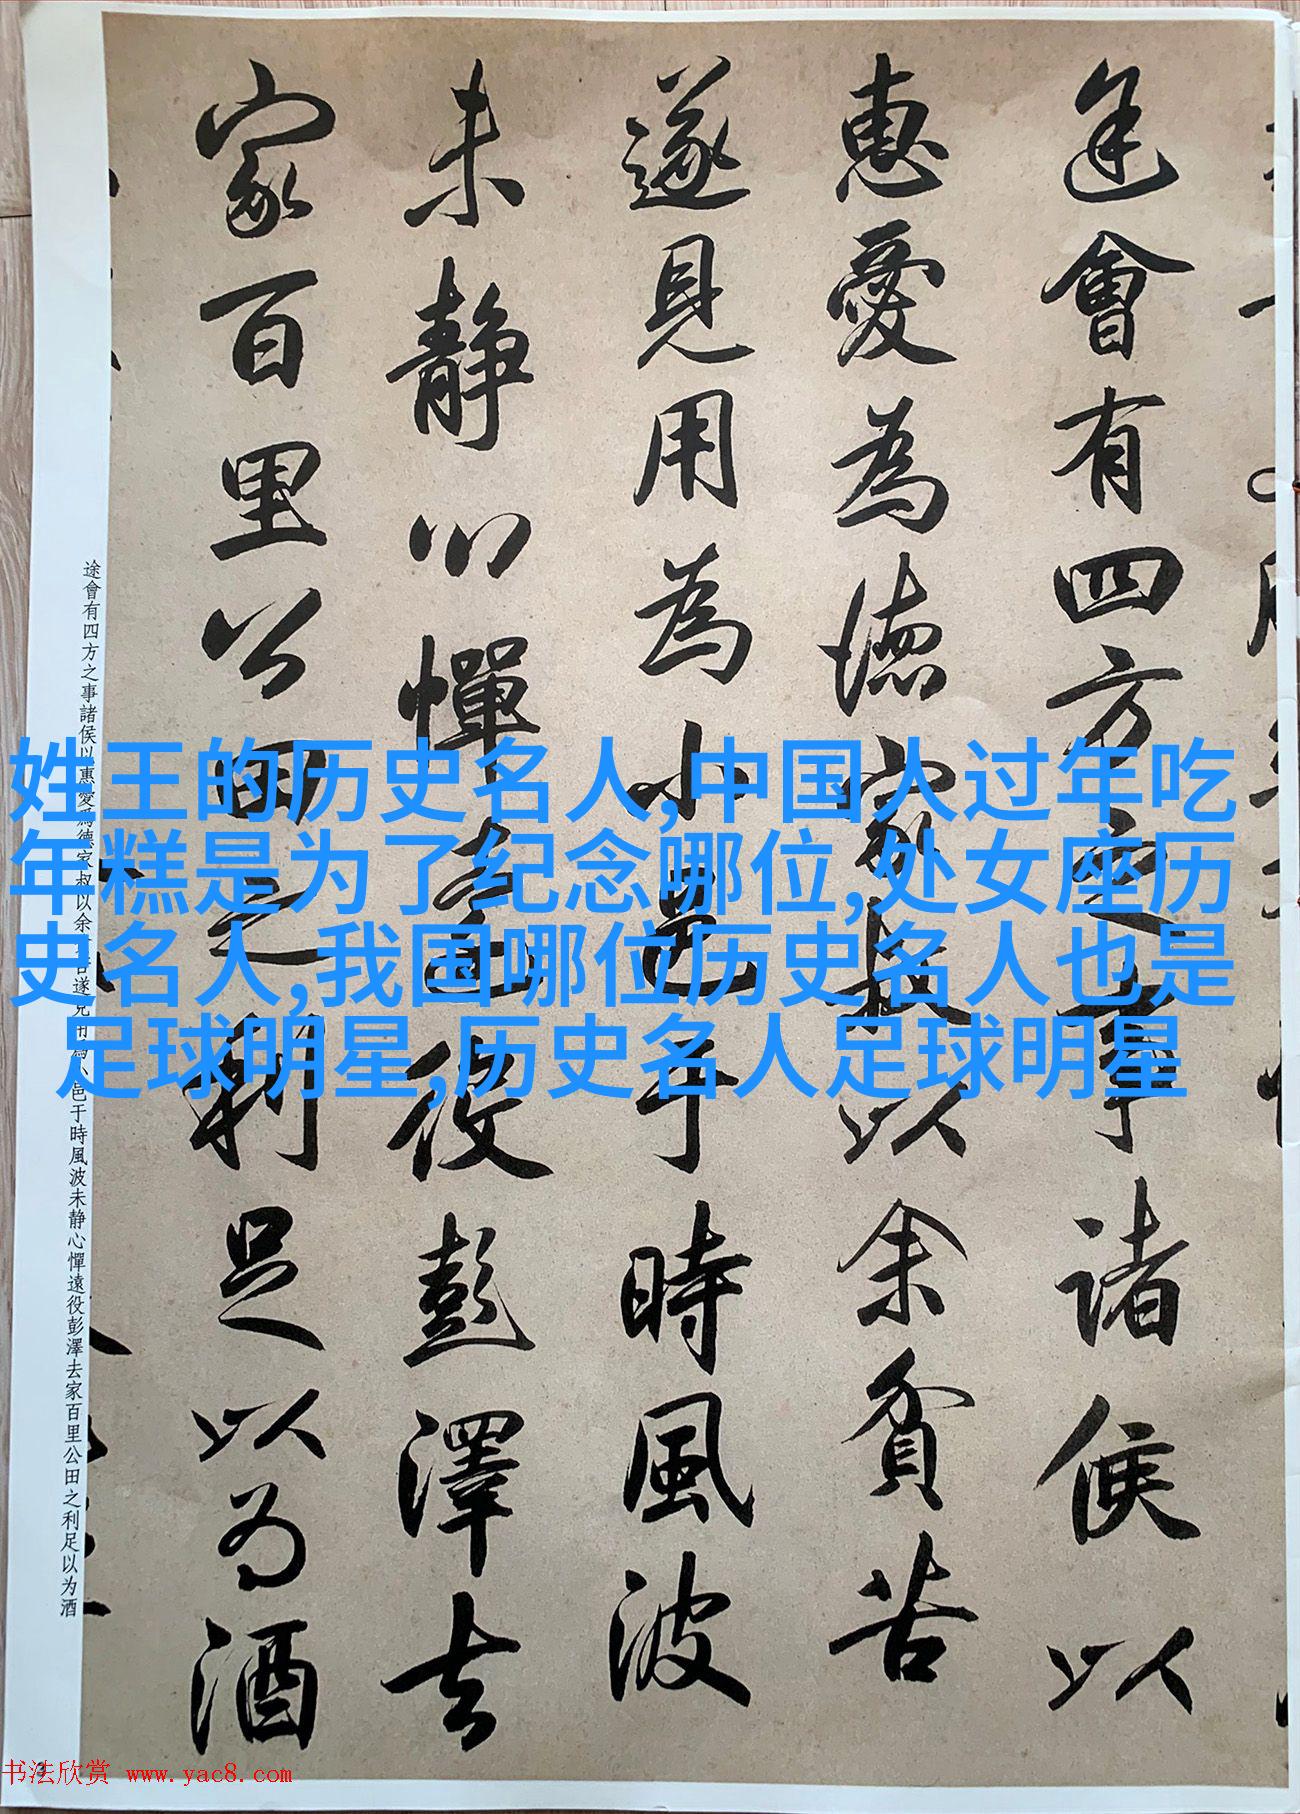 途會有四方之事諸侯以
惠愛為德家叔以余貧苦
遂見用為小邑于時風波
未靜心憚遠役彭澤去
家百里公田之利足以為酒
姓王的历史名人,中国人过年吃
年糕是为了纪念哪位,处女座历
史名人,我国哪位历史名人也是
足球明星,历史名人足球明星
途會有四方之事諸侯以惠愛為德家叔以余貧苦遂見用為小邑于時風波未静心憚遠役彭澤去家百里公田之利足以为酒
书法欣赏 www.yac8.com